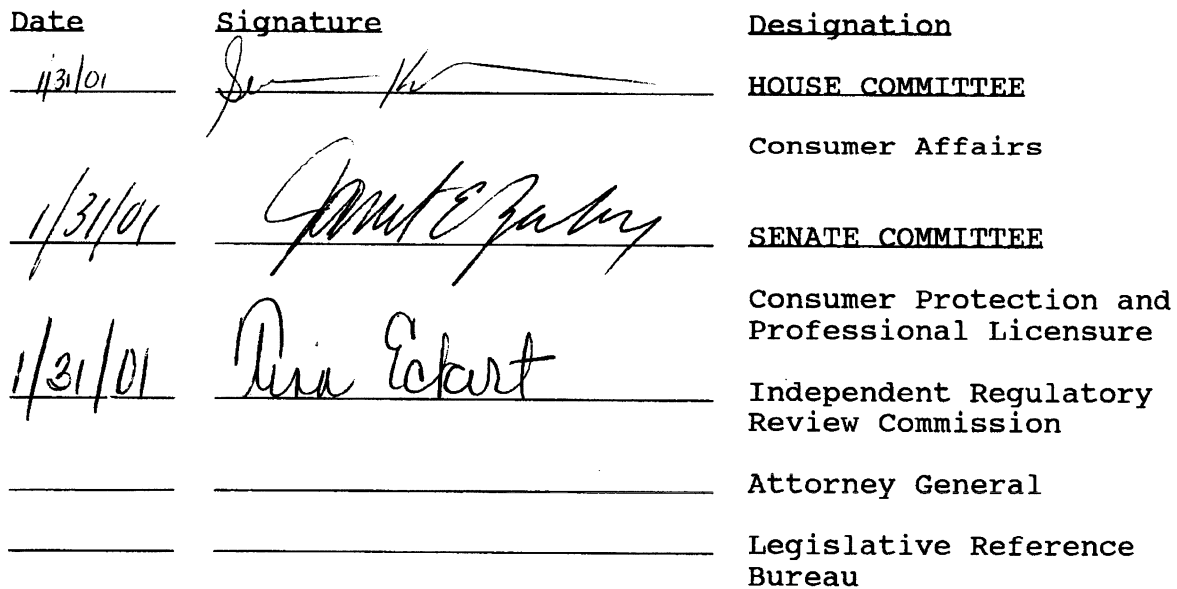 Date Signature Designation
1/31/01 HOUSE COMMITTEE
Consumer Affairs
1/31/01 Janet E SENATE COMMITTEE
Consumer Protection and
Professional Licensure
1/31/01 Tina Eckart Independent Regulatory
Review Commission
Attorney General
Legislative Reference
Bureau